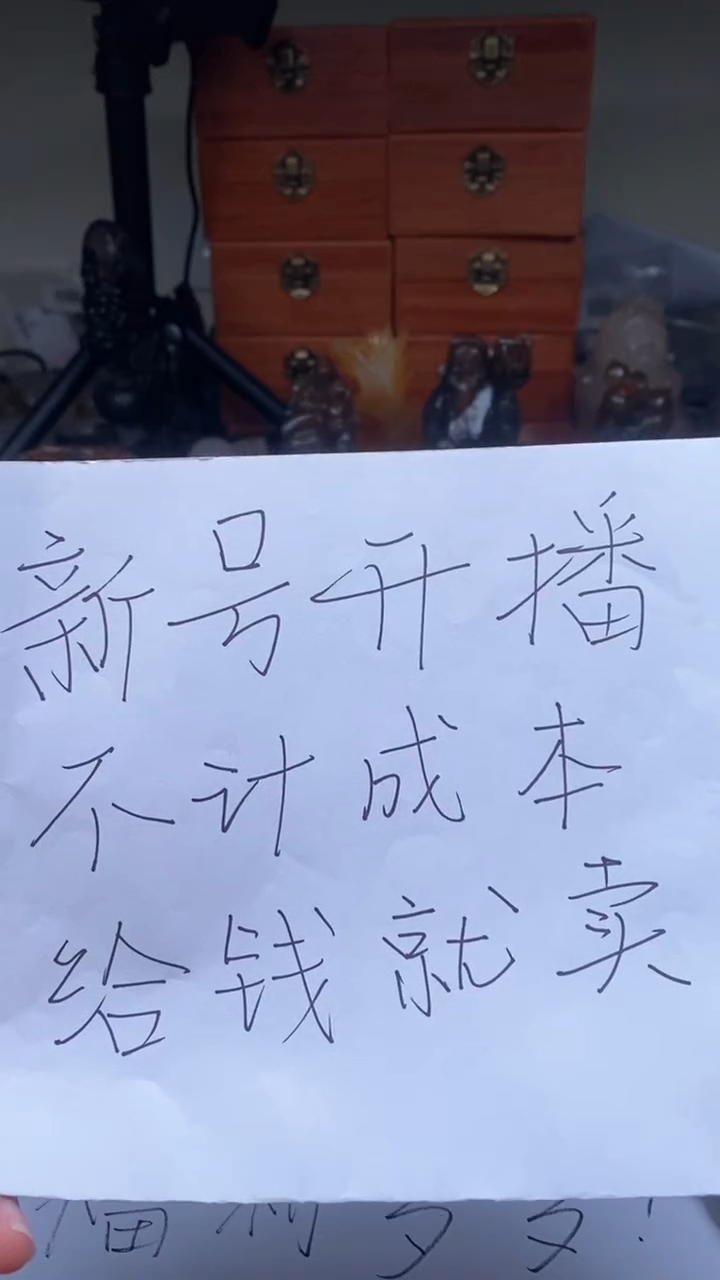 新号开播
不计成本
给钱就卖
福利多多!